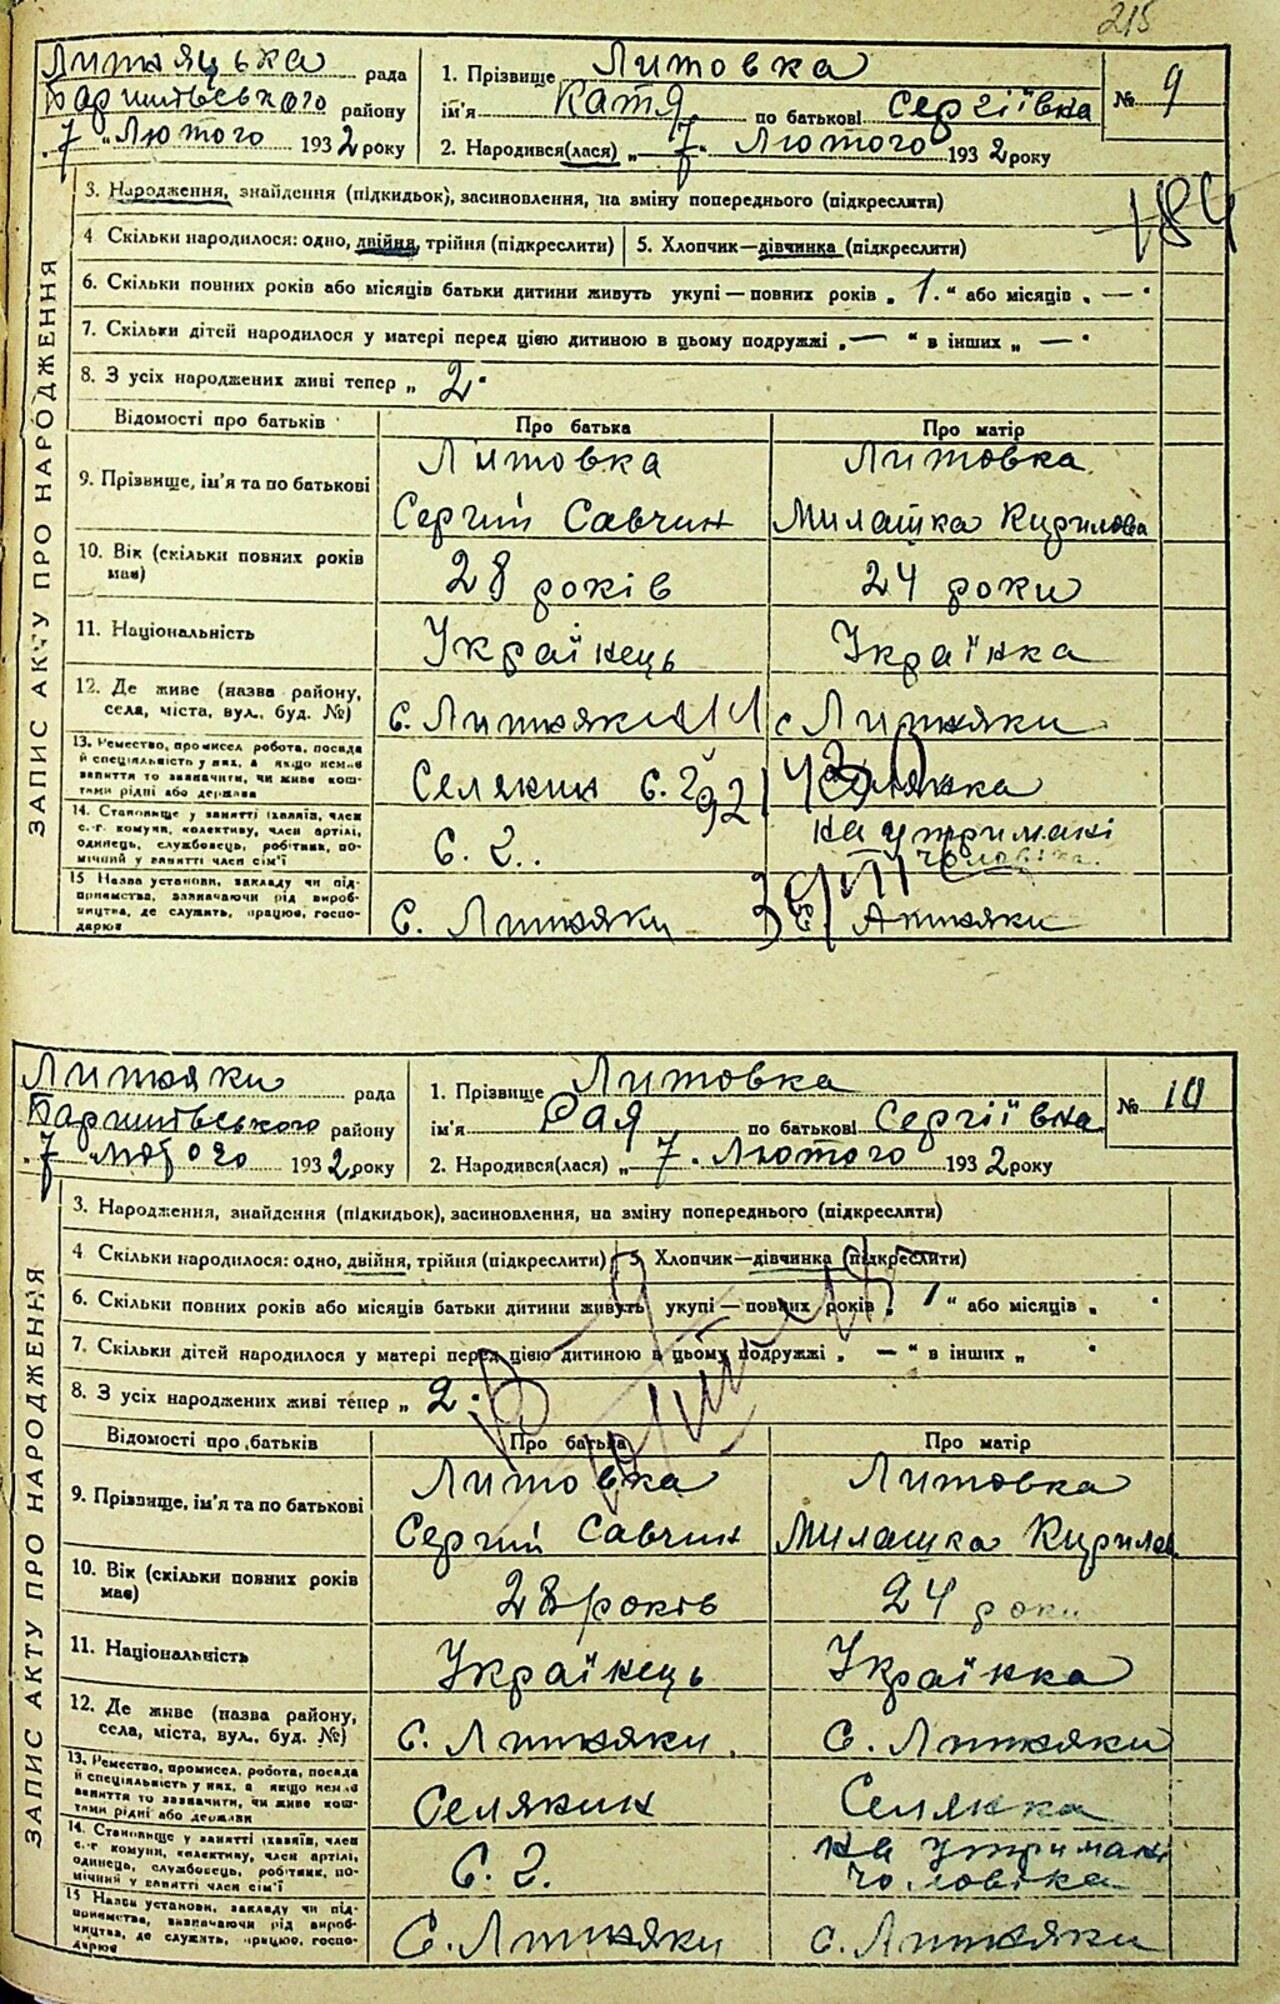 215
Литняцька рада
Баришівського району
"7" Лютого 1932 року
1. Прізвище Литовка
ім'я Катя по батькові Сергіївна
2. Народився(лася) „7" Лютого 1932 року
№ 9
ЗАПИС АКТУ ПРО НАРОДЖЕННЯ
3. Народження, знайдення (підкидьок), засиновлення, на зміну попереднього (підкреслити)
4 Скільки народилося: одно, двійня, трійня (підкреслити) 5. Хлопчик—дівчинка (підкреслити)
6. Скільки повних років або місяців батьки дитини живуть укупі—повних років „1." або місяців „—"
7. Скільки дітей народилося у матері перед цією дитиною в цьому подружжі „—" в інших „—"
8. З усіх народжених живі тепер „2"
Відомості про батьків Про батька Про матір
9. Прізвище, ім'я та по батькові
Литовка Литовка
Сергій Савчин Милашка Кирилова
10. Вік (скільки повних років має)
28 років 24 роки
11. Національність Українець Українка
12. Де живе (назва району,
села, міста, вул., буд. №) с. Литняки с Литняки
13. Ремество, промисел робота, посада
й спеціяльність у них, а якщо немає
заняття то зазначити, чи живе кош-
тами рідні або держави
Селянин с. г. Селянка
14. Становище у занятті (хазяїн, член
с.-г. комуни, колективу, член артілі,
одинець, службовець, робітник, по-
мічний у занятті член сім'ї
с. г. на утримані
чоловіка.
15 Назва установи, закладу чи під-
приємства, зазначаючи рід вироб-
ництва, де служить, працює, госпо-
дарює
с. Литняки с. Литняки
Литняки рада
Баришівського району
"7" лютого 1932 року
1. Прізвище Литовка
ім'я Рая по батькові Сергіївна
2. Народився(лася) „7" Лютого 1932 року
№ 10
ЗАПИС АКТУ ПРО НАРОДЖЕННЯ
3. Народження, знайдення (підкидьок), засиновлення, на зміну попереднього (підкреслити)
4 Скільки народилося: одно, двійня, трійня (підкреслити) 5 Хлопчик—дівчинка (підкреслити)
6. Скільки повних років або місяців батьки дитини живуть укупі—повних років „1" або місяців „ "
7. Скільки дітей народилося у матері перед цією дитиною в цьому подружжі „—" в інших „ "
8. З усіх народжених живі тепер „2"
Відомості про батьків Про батька Про матір
9. Прізвище, ім'я та по батькові
Литовка Литовка
Сергій Савчин Милашка Кирилов
10. Вік (скільки повних років має)
28 років 24 роки
11. Національність Українець Українка
12. Де живе (назва району,
села, міста, вул., буд. №) с. Литняки. с. Литняки
13. Ремество, промисел, робота, посада
й спеціяльність у них, а якщо немає
заняття то зазначити, чи живе кош-
тами рідні або держави
Селянин Селянка
14. Становище у занятті (хазяїн, член
с.-г комуни, колективу, член артілі,
одинець, службовець, робітник, по-
мічний у занятті член сім'ї
с. г. на утримані
чоловіка
15 Назва установи, закладу чи під-
приємства, зазначаючи рід вироб-
ництва, де служить, працює, госпо-
дарює
с. Литняки с. Литняки